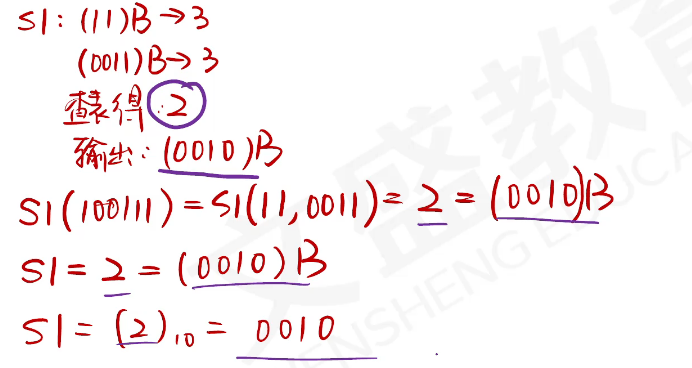 S1：(11)B→3
(0011)B→3
查表得：2
输出：(0010)B
S1(100111)=S1(11,0011)=2=(0010)B
S1=2=(0010)B
S1=(2)₁₀=0010
文盛教育
WENSHENG EDUCA